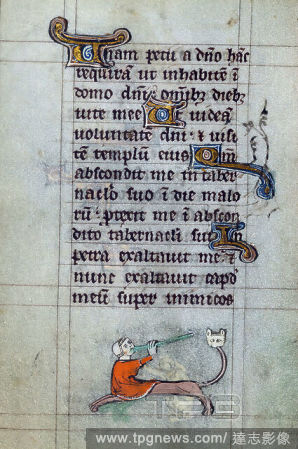 Unam petii a dño hãc
requirã ut inhabitẽ ĩ
domo dñi oĩnibꝫ diebꝫ
uite mee Ut uideã
uoluntatẽ dñi ⁊ uisi
tẽ templũ eius Qm̃
abscondit me in taber
naclo suo ĩ die malo
rũ protexit me ĩ abscon
dito tabernacli sui In
petra exaltauit me ⁊
nunc exaltauit capð
meũ super inimicos
TPG
www.tpgnews.com/ 達志影像